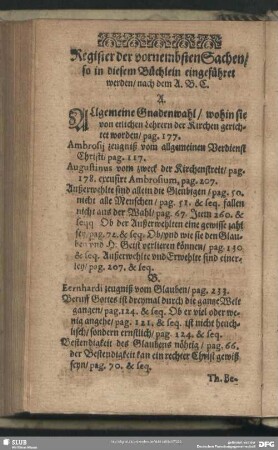 Register der vornembsten Sachen/
so in diesem Büchlein eingeführet
werden/ nach dem A. B. C.
A.
Allgemeine Gnadenwahl/ wohin sie
von etlichen Lehrern der Kirchen gerich-
tet worden/ pag. 177.
Ambrosij zeugniß vom allgemeinen Verdienst
Christi/ pag. 117.
Augustinus vom zweck der Kirchenstreit/ pag.
178. excusirt Ambrosium, pag. 207.
Außerwehlte sind allein die Gleubigen/ pag. 50.
nicht alle Menschen/ pag. 51. & seq. fallen
nicht aus der Wahl/ pag. 67. Item 260. &
seqq Ob der Außerwehlten eine gewisse zahl
sey/ pag. 72. & seq. Ob/und wie sie den Glau-
ben und H. Geist verlieren können/ pag. 130
& seq. Außerwehlte und Erwehlte sind einer-
ley/ pag. 207. & seq.
B.
Bernhardi zeugniß vom Glauben/ pag. 233.
Beruff Gottes ist dreymal durch die gantze Welt
gangen/ pag. 124. & seq. Ob er viel oder we-
nig angehe/ pag. 121. & seq. ist nicht heuch-
lisch/ sondern ernstlich/ pag. 124. & seq.
Bestendigkeit des Glaubens nöhtig/ pag. 66.
der Bestendigkeit kan ein rechter Christ gewiß
seyn/ pag. 70. & seq.
Th. Be-
SLUB
DFG